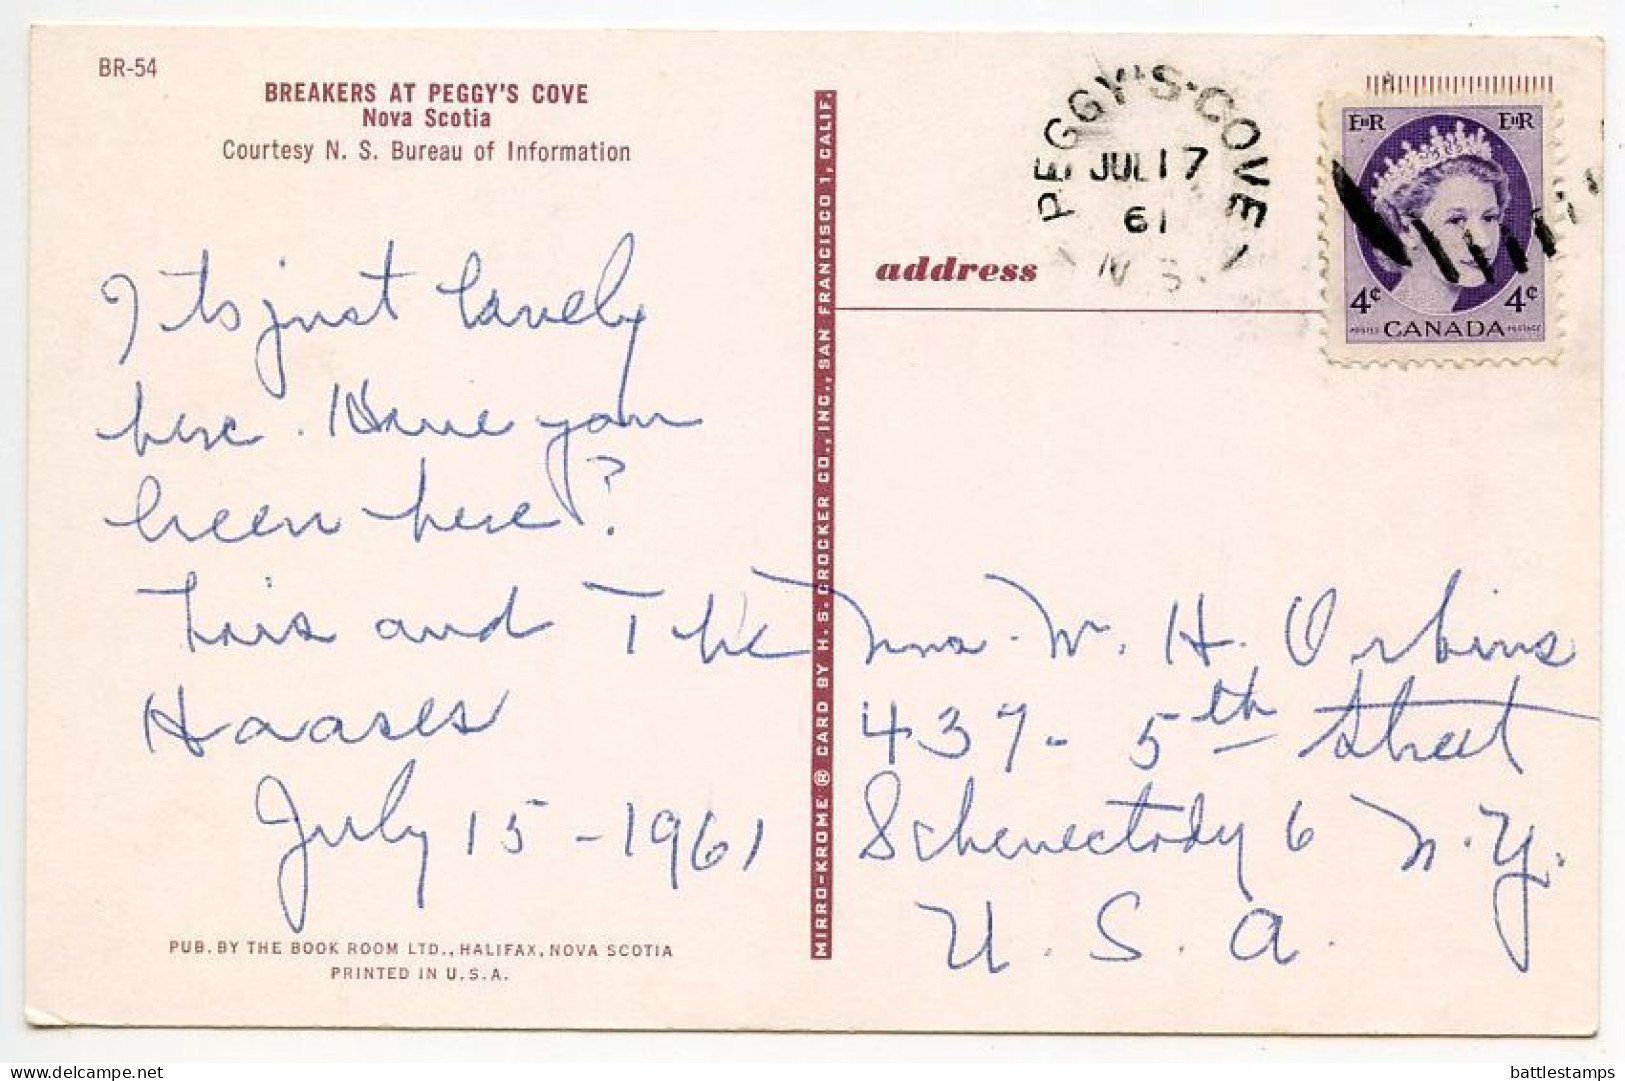 BR-54
BREAKERS AT PEGGY'S COVE
Nova Scotia
Courtesy N. S. Bureau of Information
Its just lovely
here. Have you
been here?
Lois and The
Haases
July 15-1961
PUB. BY THE BOOK ROOM LTD., HALIFAX, NOVA SCOTIA
PRINTED IN U.S.A.
MIRRO-KROME ® CARD BY H. S. CROCKER CO., INC., SAN FRANCISCO 1, CALIF.
PEGGY'S-COVE
JUL 17
61
N.S.
address
EIIR EIIR
4¢ 4¢
POSTES CANADA POSTAGE
Mrs. W. H. Orbins
437- 5th Street
Schenectady 6 N.Y.
U.S.A.
battlestamps